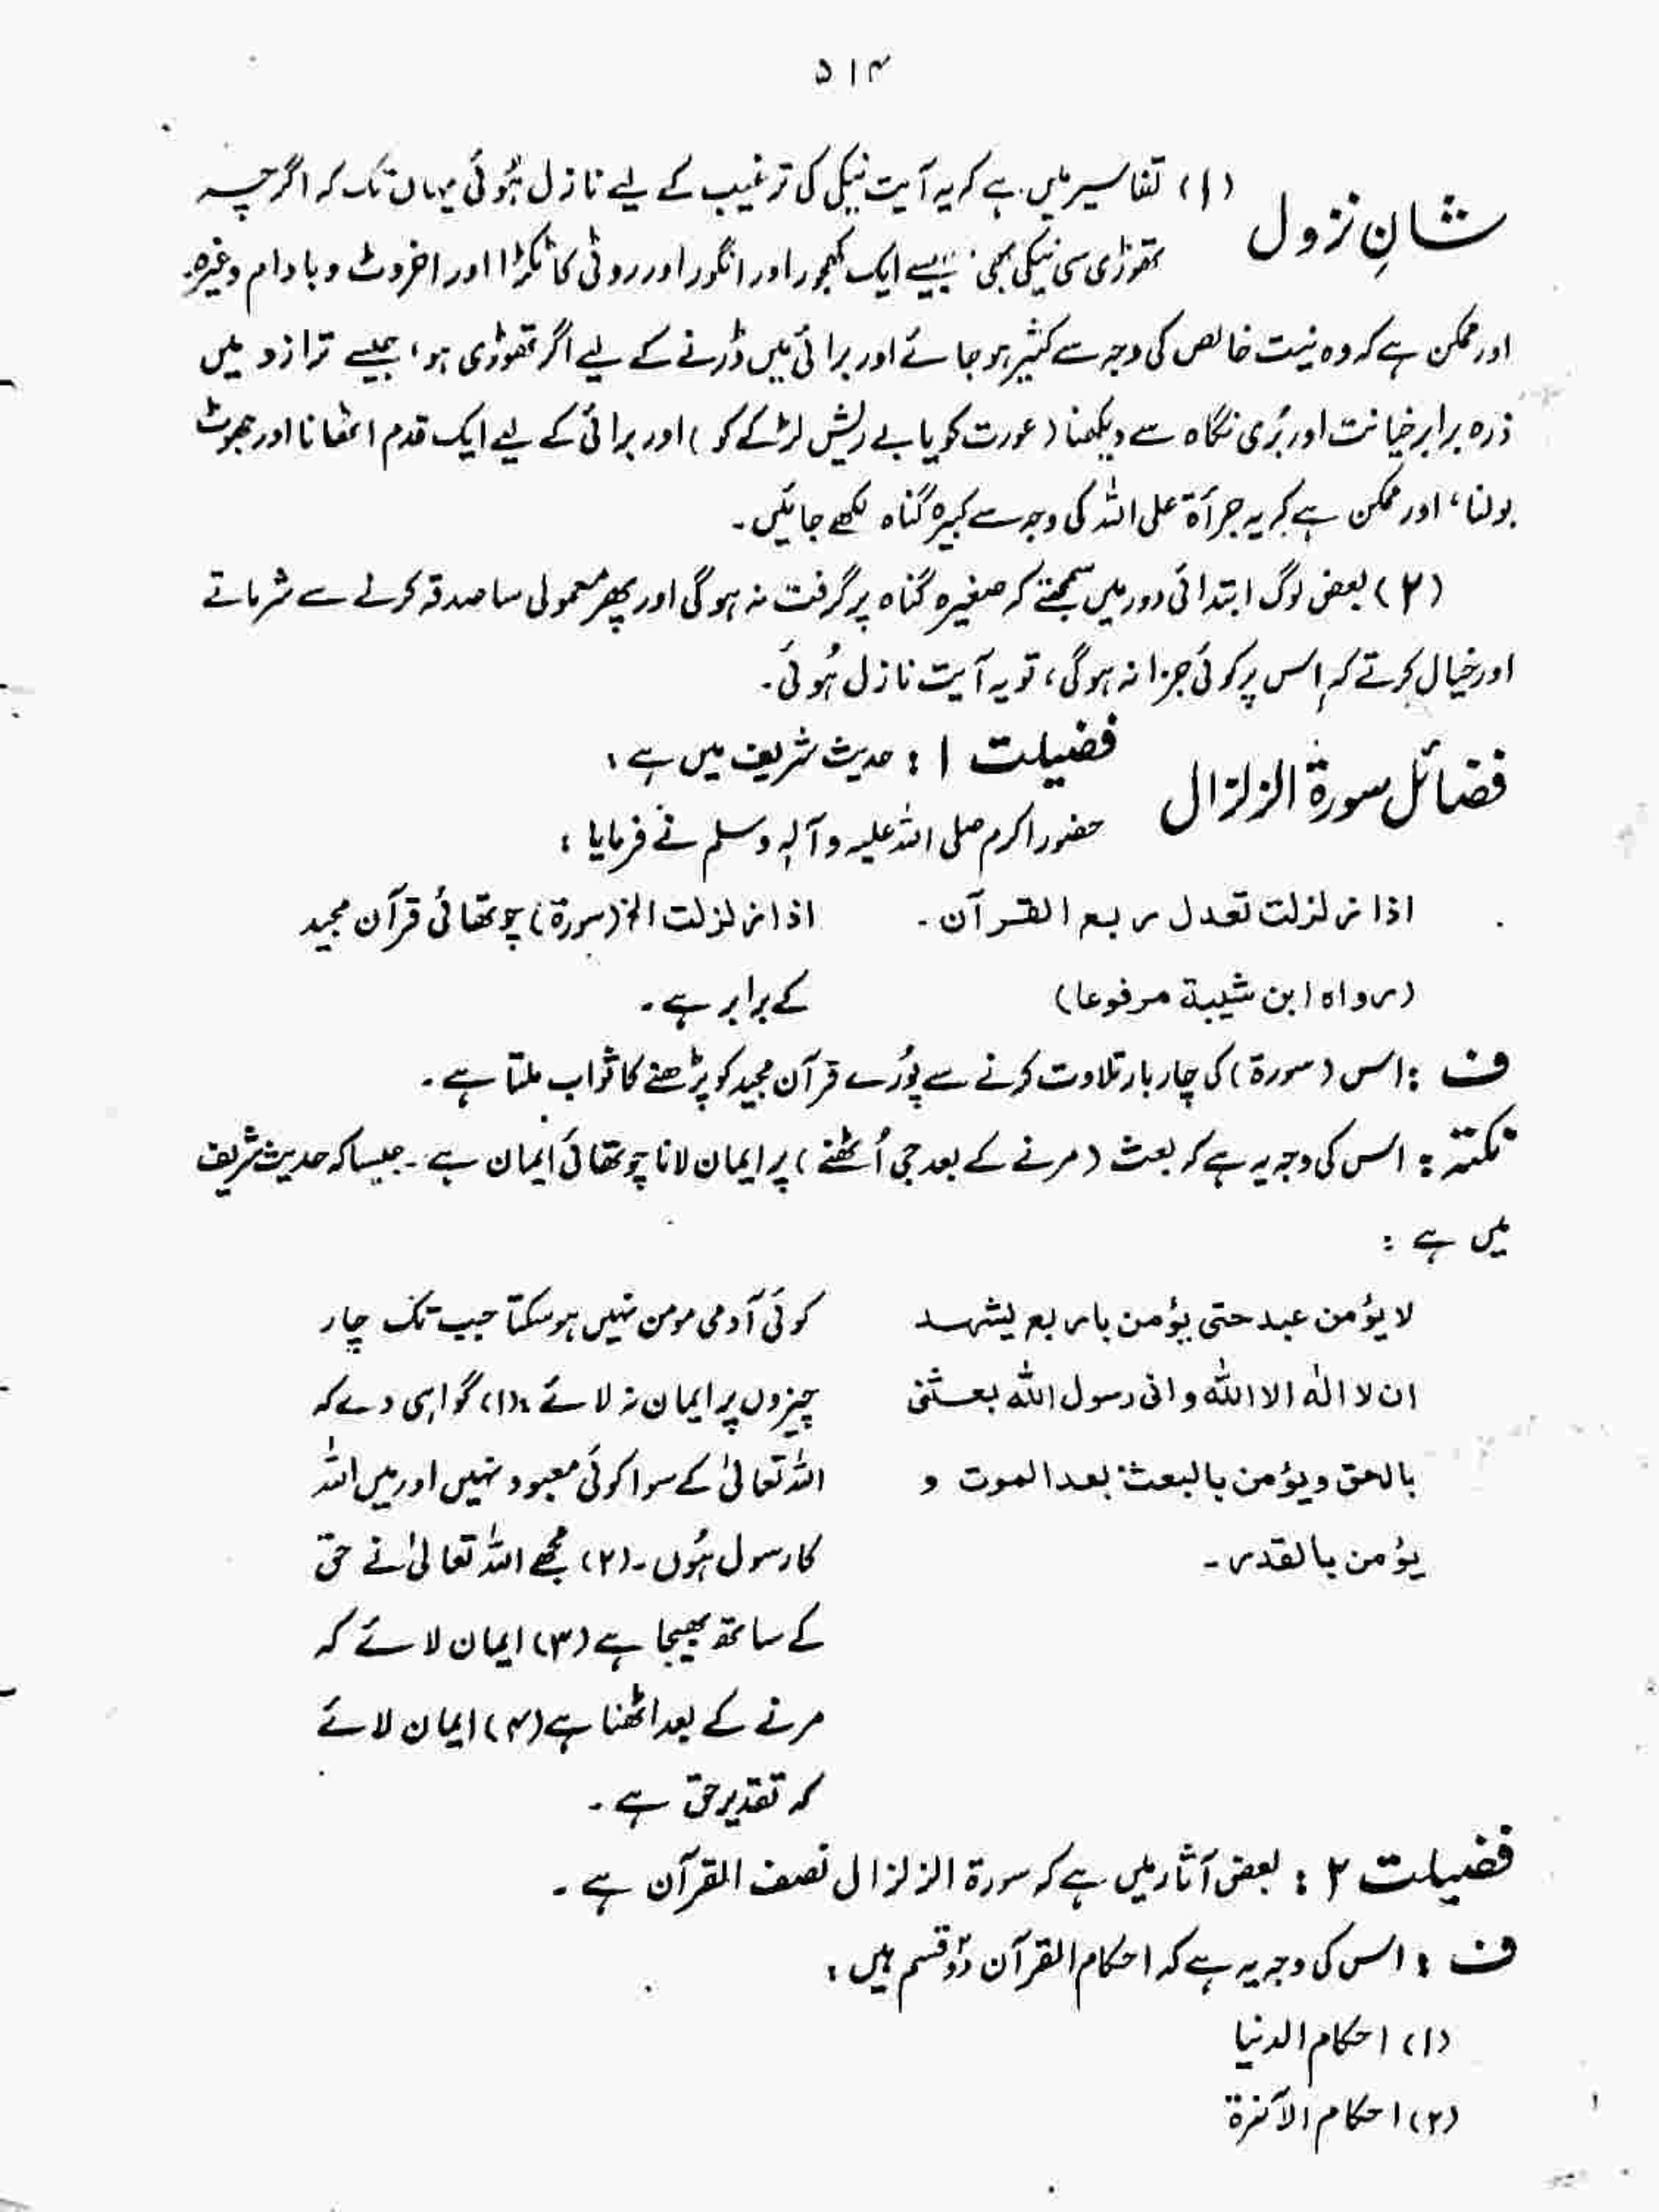 ۵۱۴
شانِ نزول
(۱) تفاسیر میں ہے کہ یہ آیت نیکی کی ترغیب کے لیے نازل ہُوئی یہاں تک کہ اگرچہ
تھوڑی سی نیکی بھی جیسے ایک کھجور اور انگور اور روٹی کا ٹکڑا اور اخروٹ و بادام وغیرہ۔
اور ممکن ہے کہ وہ نیت خالص کی وجہ سے کثیر ہو جائے اور برائی میں ڈرنے کے لیے اگر تھوڑی ہو، جیسے ترازو میں
ذرہ برابر خیانت اور بُری نگاہ سے دیکھنا (عورت کو یا بے ریش لڑکے کو) اور برائی کے لیے ایک قدم اٹھانا اور جھوٹ
بولنا، اور ممکن ہے کہ یہ جرأۃ علی اللہ کی وجہ سے کبیرہ گناہ لکھے جائیں۔
(۲) بعض لوگ ابتدائی دور میں سمجھتے کہ صغیرہ گناہ پر گرفت نہ ہوگی اور پھر معمولی سا صدقہ کرنے سے شرماتے
اور خیال کرتے کہ اس پر کوئی جزا نہ ہوگی، تو یہ آیت نازل ہُوئی۔
فضائل سورۃ الزلزال
فضیلت ۱ : حدیث شریف میں ہے :
حضور اکرم صلی اللہ علیہ وآلہٖ وسلم نے فرمایا :
اذا زلزلت تعدل ربع القرآن۔
اذا زلزلت الخ (سورۃ) چوتھائی قرآن مجید
(رواہ ابن شیبۃ مرفوعا)
کے برابر ہے۔
ف : اس (سورۃ) کی چار بار تلاوت کرنے سے پُورے قرآن مجید کو پڑھنے کا ثواب ملتا ہے۔
نکتہ : اس کی وجہ یہ ہے کہ بعث (مرنے کے بعد جی اُٹھنے) پر ایمان لانا چوتھائی ایمان ہے۔ جیسا کہ حدیث شریف
میں ہے :
لا یؤمن عبد حتی یؤمن باربع یشہد
کوئی آدمی مومن نہیں ہو سکتا جب تک چار
ان لا الٰہ الا اللہ و انی رسول اللہ بعثنی
چیزوں پر ایمان نہ لائے : (۱) گواہی دے کہ
بالحق و یؤمن بالبعث بعد الموت و
اللہ تعالیٰ کے سوا کوئی معبود نہیں اور میں اللہ
یؤمن بالقدر۔
کا رسول ہُوں۔ (۲) مجھے اللہ تعالیٰ نے حق
کے ساتھ بھیجا ہے (۳) ایمان لائے کہ
مرنے کے بعد اٹھنا ہے (۴) ایمان لائے
کہ تقدیر حق ہے۔
فضیلت ۲ : بعض آثار میں ہے کہ سورۃ الزلزال نصف القرآن ہے۔
ف : اس کی وجہ یہ ہے کہ احکام القرآن دو قسم ہیں :
(۱) احکام الدنیا
(۲) احکام الآخرۃ